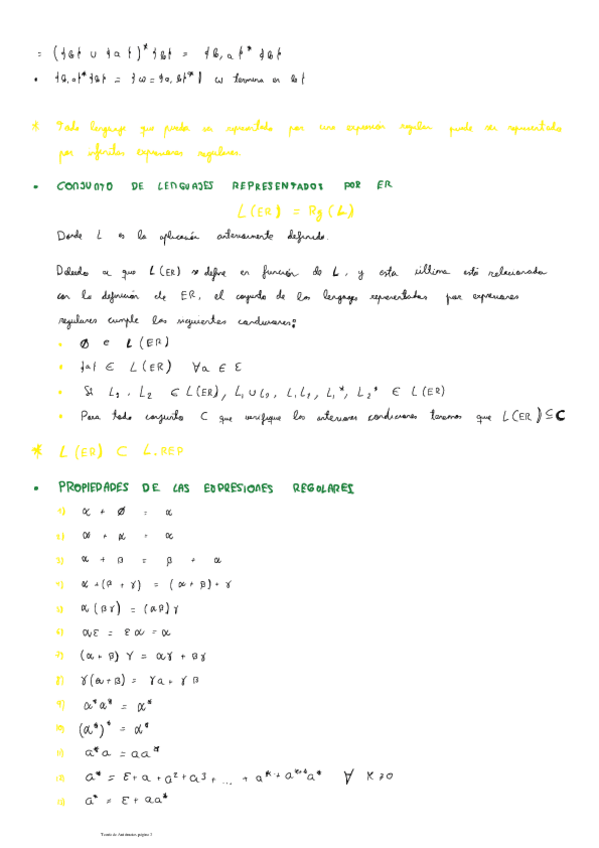 = ({b} ∪ {a})* {b} = {b, a}* {b}
• {b, a}* {b} = {ω = {a, b}* | ω termina en b}
* Todo lenguaje que pueda ser representado por una expresión regular puede ser representado
por infinitas expresiones regulares
• CONJUNTO DE LENGUAJES REPRESENTADOS POR ER
L(ER) = Rg(L)
Donde L es la aplicación anteriormente definida.
Debido a que L(ER) se define en función de L, y esta última está relacionada
con la definición de ER, el conjunto de los lenguajes representados por expresiones
regulares cumple las siguientes condiciones:
• Ø ∈ L(ER)
• {a} ∈ L(ER) ∀a ∈ Σ
• Si L1, L2 ∈ L(ER), L1 ∪ L2, L1L2, L1*, L2* ∈ L(ER)
• Para todo conjunto C que verifique las anteriores condiciones tenemos que L(ER) ⊆ C
* L(ER) ⊂ L.REP
• PROPIEDADES DE LAS EXPRESIONES REGULARES
1) α + Ø = α
2) α + α = α
3) α + β = β + α
4) α + (β + γ) = (α + β) + γ
5) α(βγ) = (αβ)γ
6) αε = εα = α
7) (α + β)γ = αγ + βγ
8) γ(α + β) = γα + γβ
9) α*α* = α*
10) (α*)* = α*
11) a*a = aa*
12) a* = ε + a + a² + a³ + ... + aᵏ + aᵏ⁺¹a* ∀ K ≥ 0
13) a* = ε + aa*
Teoría de Autómatas página 5